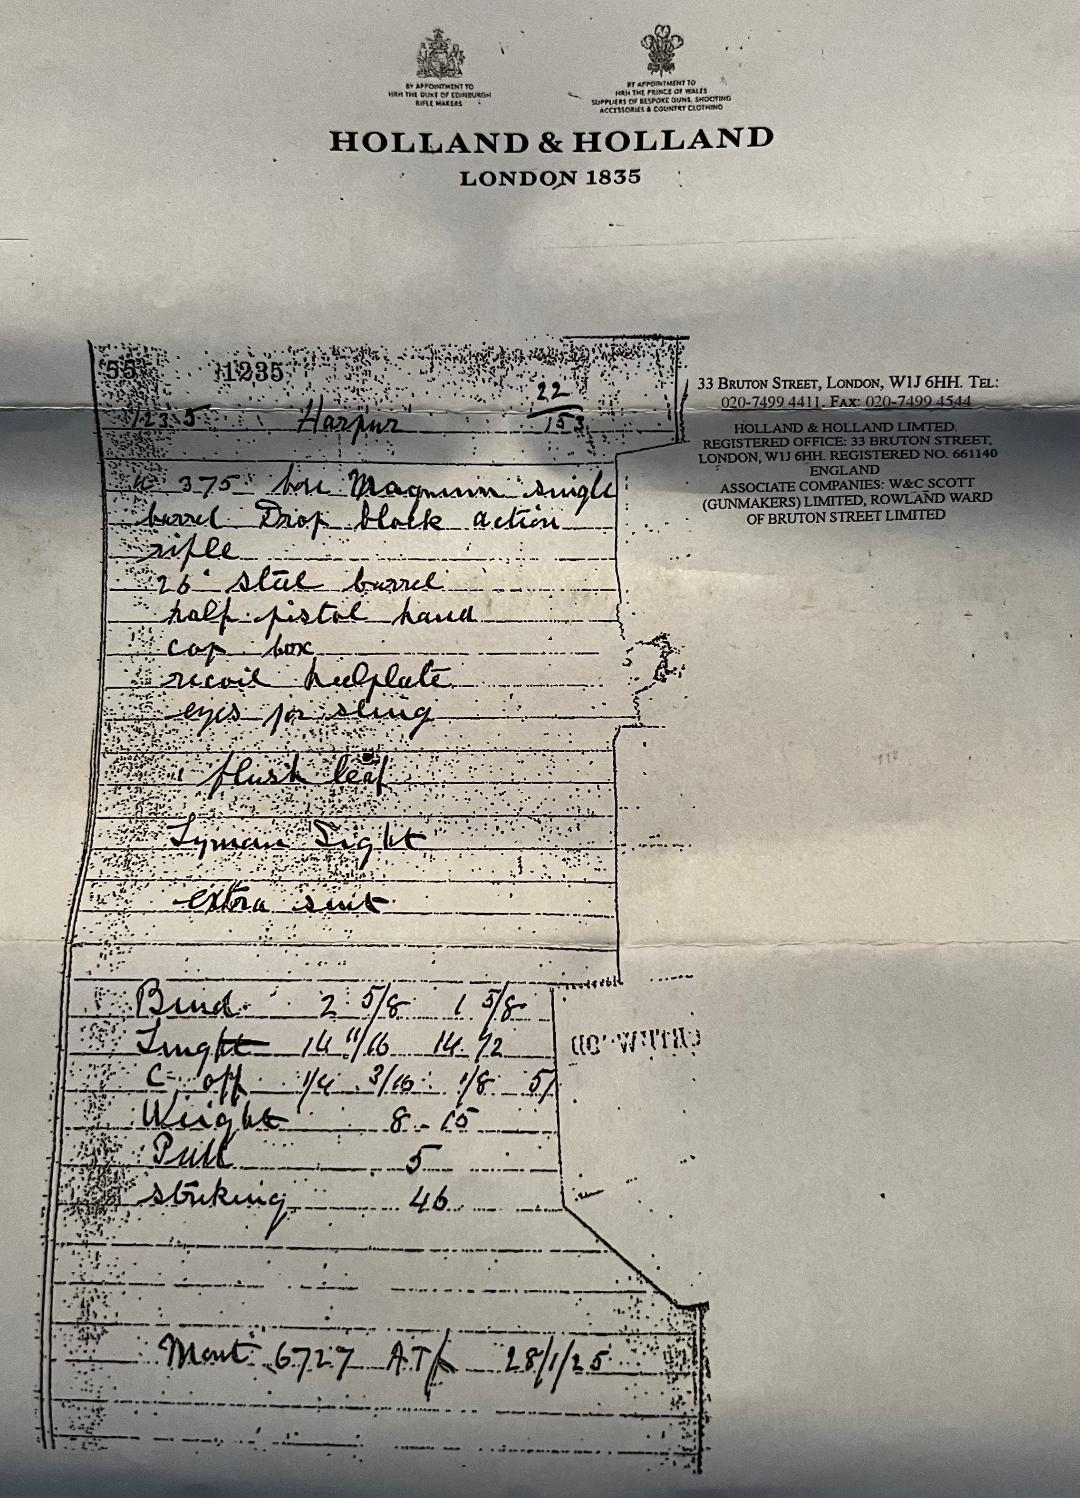 BY APPOINTMENT TO
HRH THE DUKE OF EDINBURGH
RIFLE MAKERS
BY APPOINTMENT TO
HRH THE PRINCE OF WALES
SUPPLIERS OF BESPOKE GUNS, SHOOTING
ACCESSORIES & COUNTRY CLOTHING
HOLLAND & HOLLAND
LONDON 1835
33 BRUTON STREET, LONDON, W1J 6HH. TEL:
020-7499 4411. FAX: 020-7499 4544
HOLLAND & HOLLAND LIMTED.
REGISTERED OFFICE: 33 BRUTON STREET,
LONDON, W1J 6HH. REGISTERED NO. 661140
ENGLAND
ASSOCIATE COMPANIES: W&C SCOTT
(GUNMAKERS) LIMITED, ROWLAND WARD
OF BRUTON STREET LIMITED
55 1235
1235 Harpur 22/153
a 375 bore Magnum single
barrel Drop block action
rifle
26" steel barrel
half pistol hand
cap box
recoil heelplate
eyes for sling
1 flush leaf
Lyman Sight
extra suit
Bend 2 5/8 1 5/8
Lenght 14 11/16 14 1/2
C off 1/4 3/16 1/8 5/
Weight 8-15
Pull 5
striking 46
6727 28/1/25